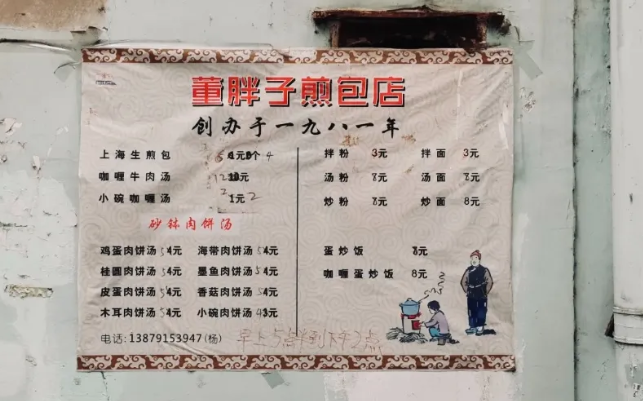 董胖子煎包店
创办于一九八一年
上海生煎包
咖喱牛肉汤
小碗咖喱汤 1元 2
砂钵肉饼汤
鸡蛋肉饼汤 54元 海带肉饼汤 54元
桂圆肉饼汤 54元 墨鱼肉饼汤 54元
皮蛋肉饼汤 54元 香菇肉饼汤 54元
木耳肉饼汤 54元 小碗肉饼汤 43元
拌粉 3元 拌面 3元
汤粉 元 汤面 元
炒粉 元 炒面 8元
蛋炒饭 元
咖喱蛋炒饭 8元
电话:13879153947(杨) 早上5点半到下午2点